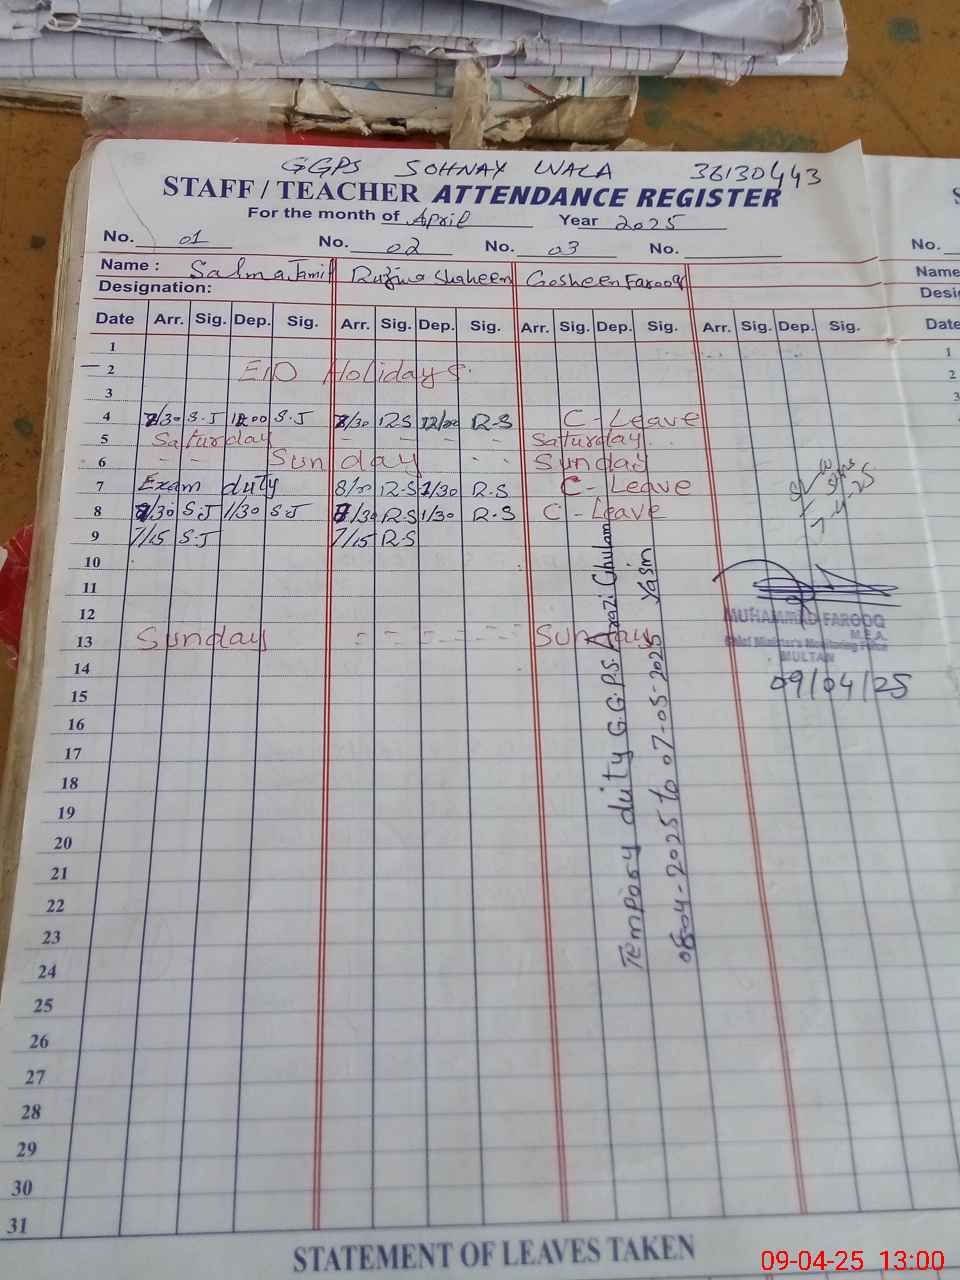 GGPS SOHNAY WALA 36130443
STAFF / TEACHER ATTENDANCE REGISTER
For the month of April Year 2025
No. 01 No. 02 No. 03 No. No.
Name : Salma Jamil Ruzina Shaheen Gosheen Farooq Name
Designation:
Date Arr. Sig. Dep. Sig. Arr. Sig. Dep. Sig. Arr. Sig. Dep. Sig. Arr. Sig. Dep. Sig. Date
1 1
2 EID Holidays. 2
3 3
4 7/30 S.J 12/00 S.J 7/30 R.S 12/00 R.S C-Leave
5 Saturday - - - - Saturday
6 - - Sunday - - Sunday
7 Exam duty 8/00 R.S 1/30 R.S C-Leave
8 7/30 S.J 1/30 S.J 7/30 R.S 1/30 R.S C-Leave
9 7/15 S.J 7/15 R.S
7-4-25
10
11
12
MUHAMMAD FAROOQ
M.E.A.
Chief Minister's Monitoring Force
MULTAN
09/04/25
13 Sunday - - - - - - Sunday
14
15
16
17
18
19
20
21
22
23
24
25
26
27
28
29
30
31
Tempory duty G.G.P.S. Arazi Ghulam
Yasin
08-04-2025 to 07-05-2025
STATEMENT OF LEAVES TAKEN
09-04-25 13:00